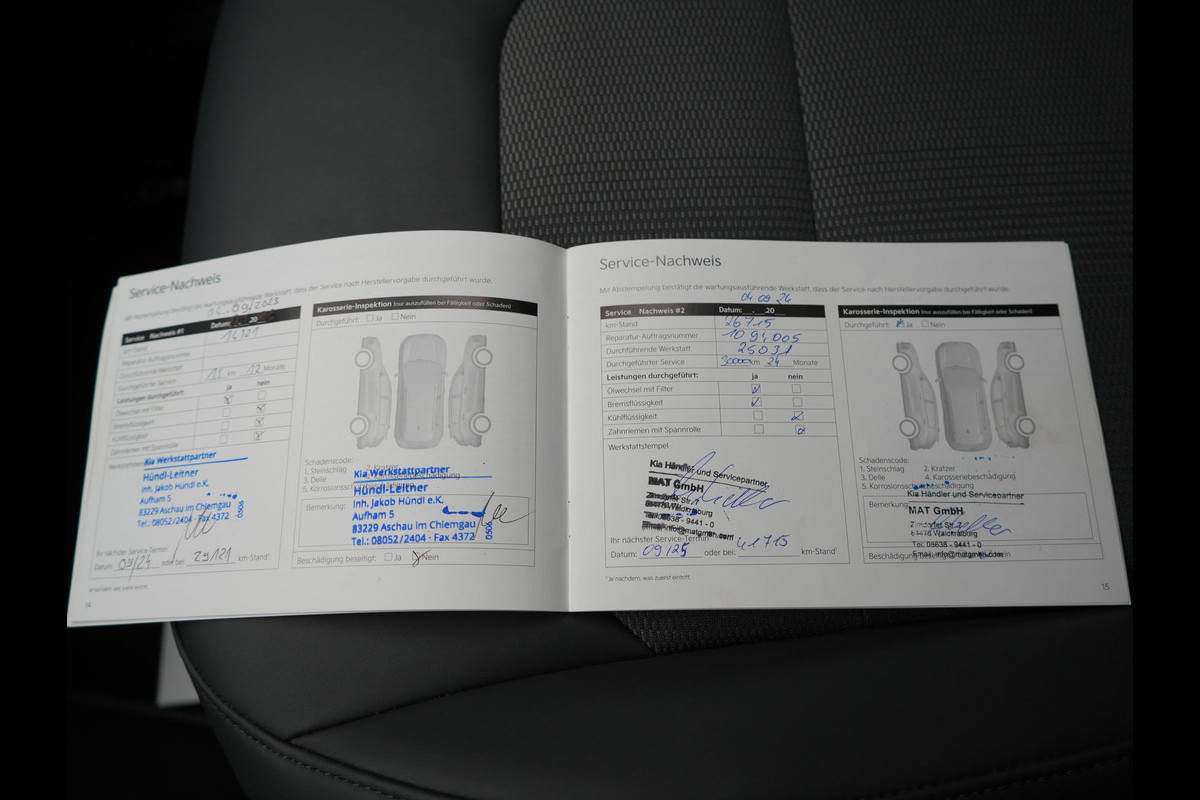 Service-Nachweis
Mit Abstempelung bestätigt die wartungsausführende Werkstatt, dass der Service nach Herstellervorgabe durchgeführt wurde.
04.09/2023
Service Nachweis #1 Datum: 20
km-Stand
Reparatur-Auftragsnummer
Durchführende Werkstatt
Durchgeführter Service 15 km 12 Monate
Leistungen durchgeführt: ja nein
Ölwechsel mit Filter
Bremsflüssigkeit
Kühlflüssigkeit
Zahnriemen mit Spannrolle
Kia Werkstattpartner
Hündl-Leitner
Inh. Jakob Hündl e.K.
Aufham 5
83229 Aschau im Chiemgau
Tel.: 08052/2404 · Fax 4372
0506
Ihr nächster Service-Termin:
Datum: 09/24 oder bei: 29121 km-Stand¹
¹ Je nachdem, was zuerst eintritt.
14
Karosserie-Inspektion (nur auszufüllen bei Fälligkeit oder Schaden)
Durchgeführt: Ja Nein
Schadenscode:
1. Steinschlag 2. Kratzer
3. Delle
5. Korrosionsschutzbeschädigung
Bemerkung:
Kia Werkstattpartner
Hündl-Leitner
Inh. Jakob Hündl e.K.
Aufham 5
83229 Aschau im Chiemgau
Tel.: 08052/2404 · Fax 4372
0506
Beschädigung beseitigt: Ja Nein
Service-Nachweis
Mit Abstempelung bestätigt die wartungsausführende Werkstatt, dass der Service nach Herstellervorgabe durchgeführt wurde.
04 09 24
Service Nachweis #2 Datum: . .20
km-Stand 26715
Reparatur-Auftragsnummer 1091005
Durchführende Werkstatt 25031
Durchgeführter Service 30000 km 24 Monate
Leistungen durchgeführt: ja nein
Ölwechsel mit Filter
Bremsflüssigkeit
Kühlflüssigkeit
Zahnriemen mit Spannrolle
Werkstattstempel
Kia Händler und Servicepartner
MAT GmbH
Ihr nächster Service-Termin
Datum: 09/25 oder bei: 41715 km-Stand¹
¹ Je nachdem, was zuerst eintritt.
Karosserie-Inspektion (nur auszufüllen bei Fälligkeit oder Schaden)
Durchgeführt: Ja Nein
Schadenscode:
1. Steinschlag 2. Kratzer
3. Delle 4. Karosseriebeschädigung
5. Korrosionsschutzbeschädigung
Bemerkung:
Kia Händler und Servicepartner
MAT GmbH
Waldkraiburg
Tel: 08638 - 9441 - 0
Beschädigung
15